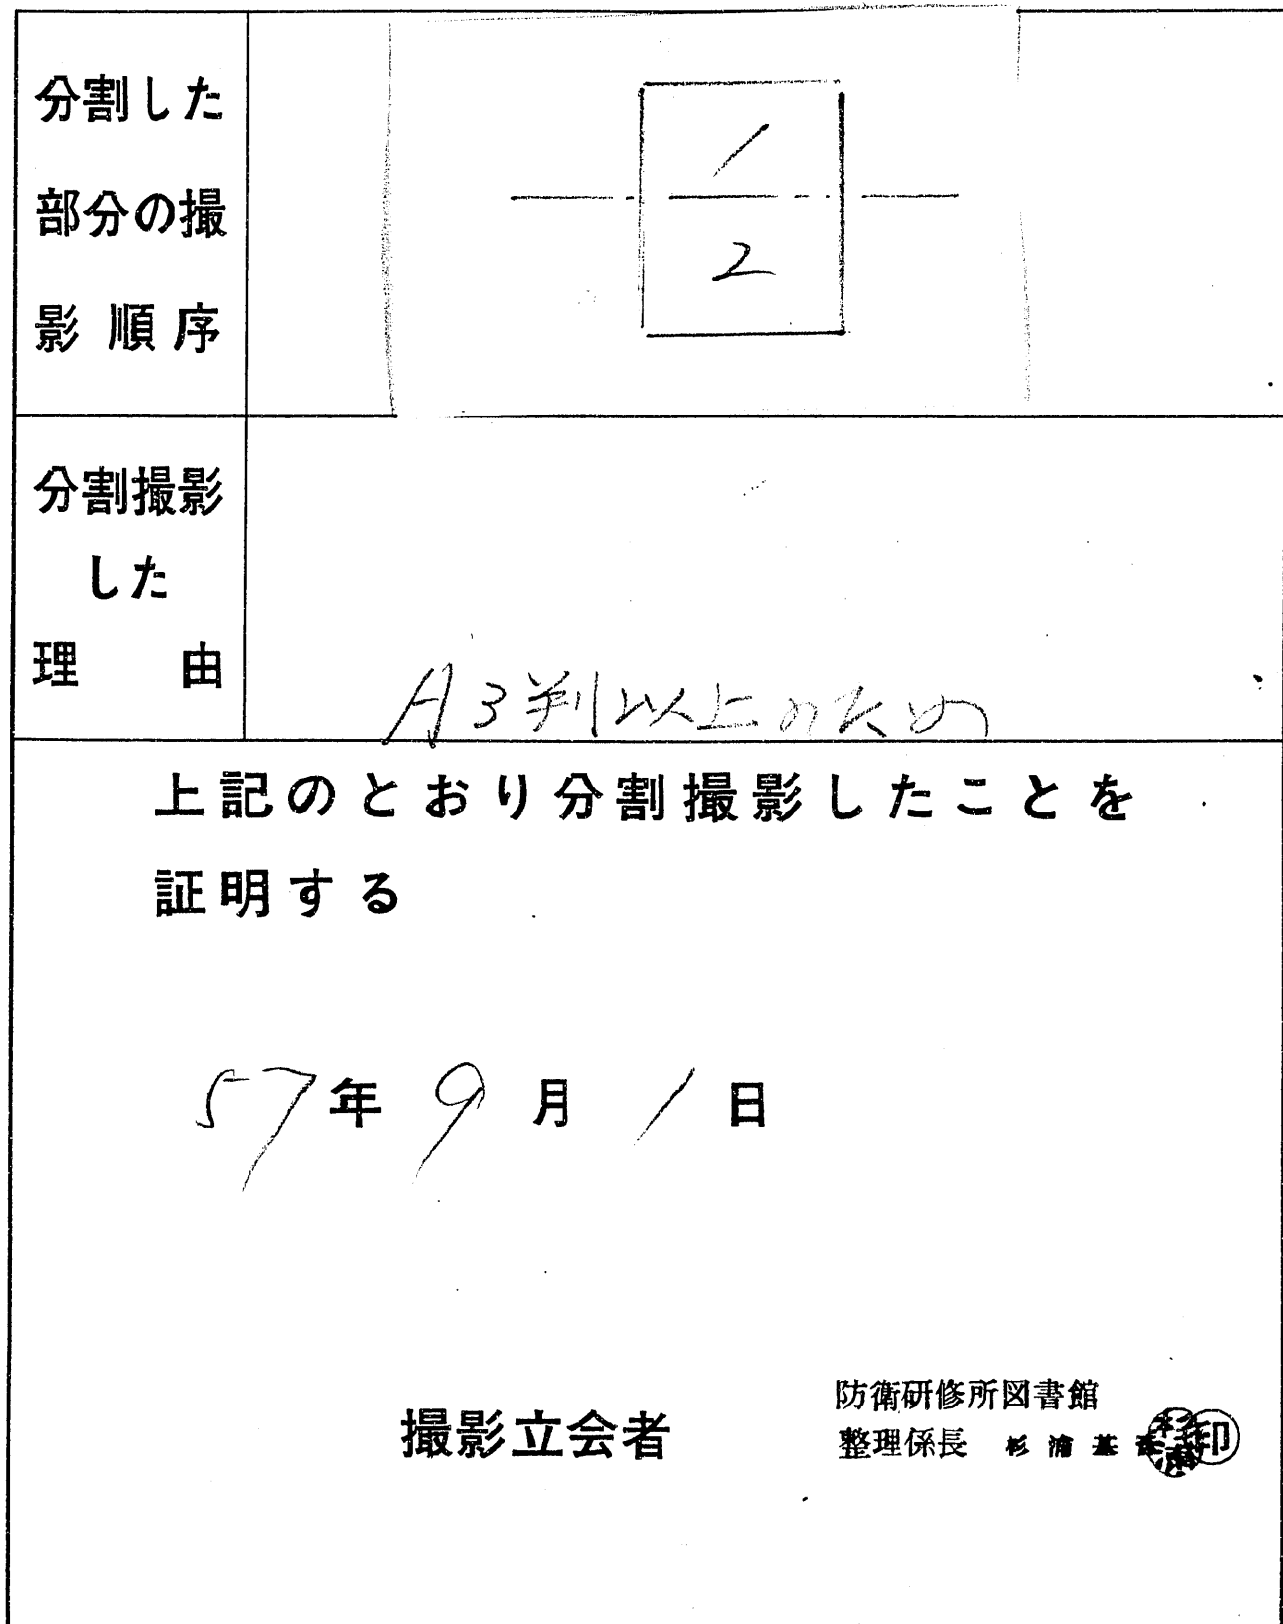 分割した
部分の撮
影順序
1
2
分割撮影
した
理由
A3判以上のため
上記のとおり分割撮影したことを
証明する
57年9月1日
撮影立会者
防衛研修所図書館
整理係長 杉浦基
杉浦
印